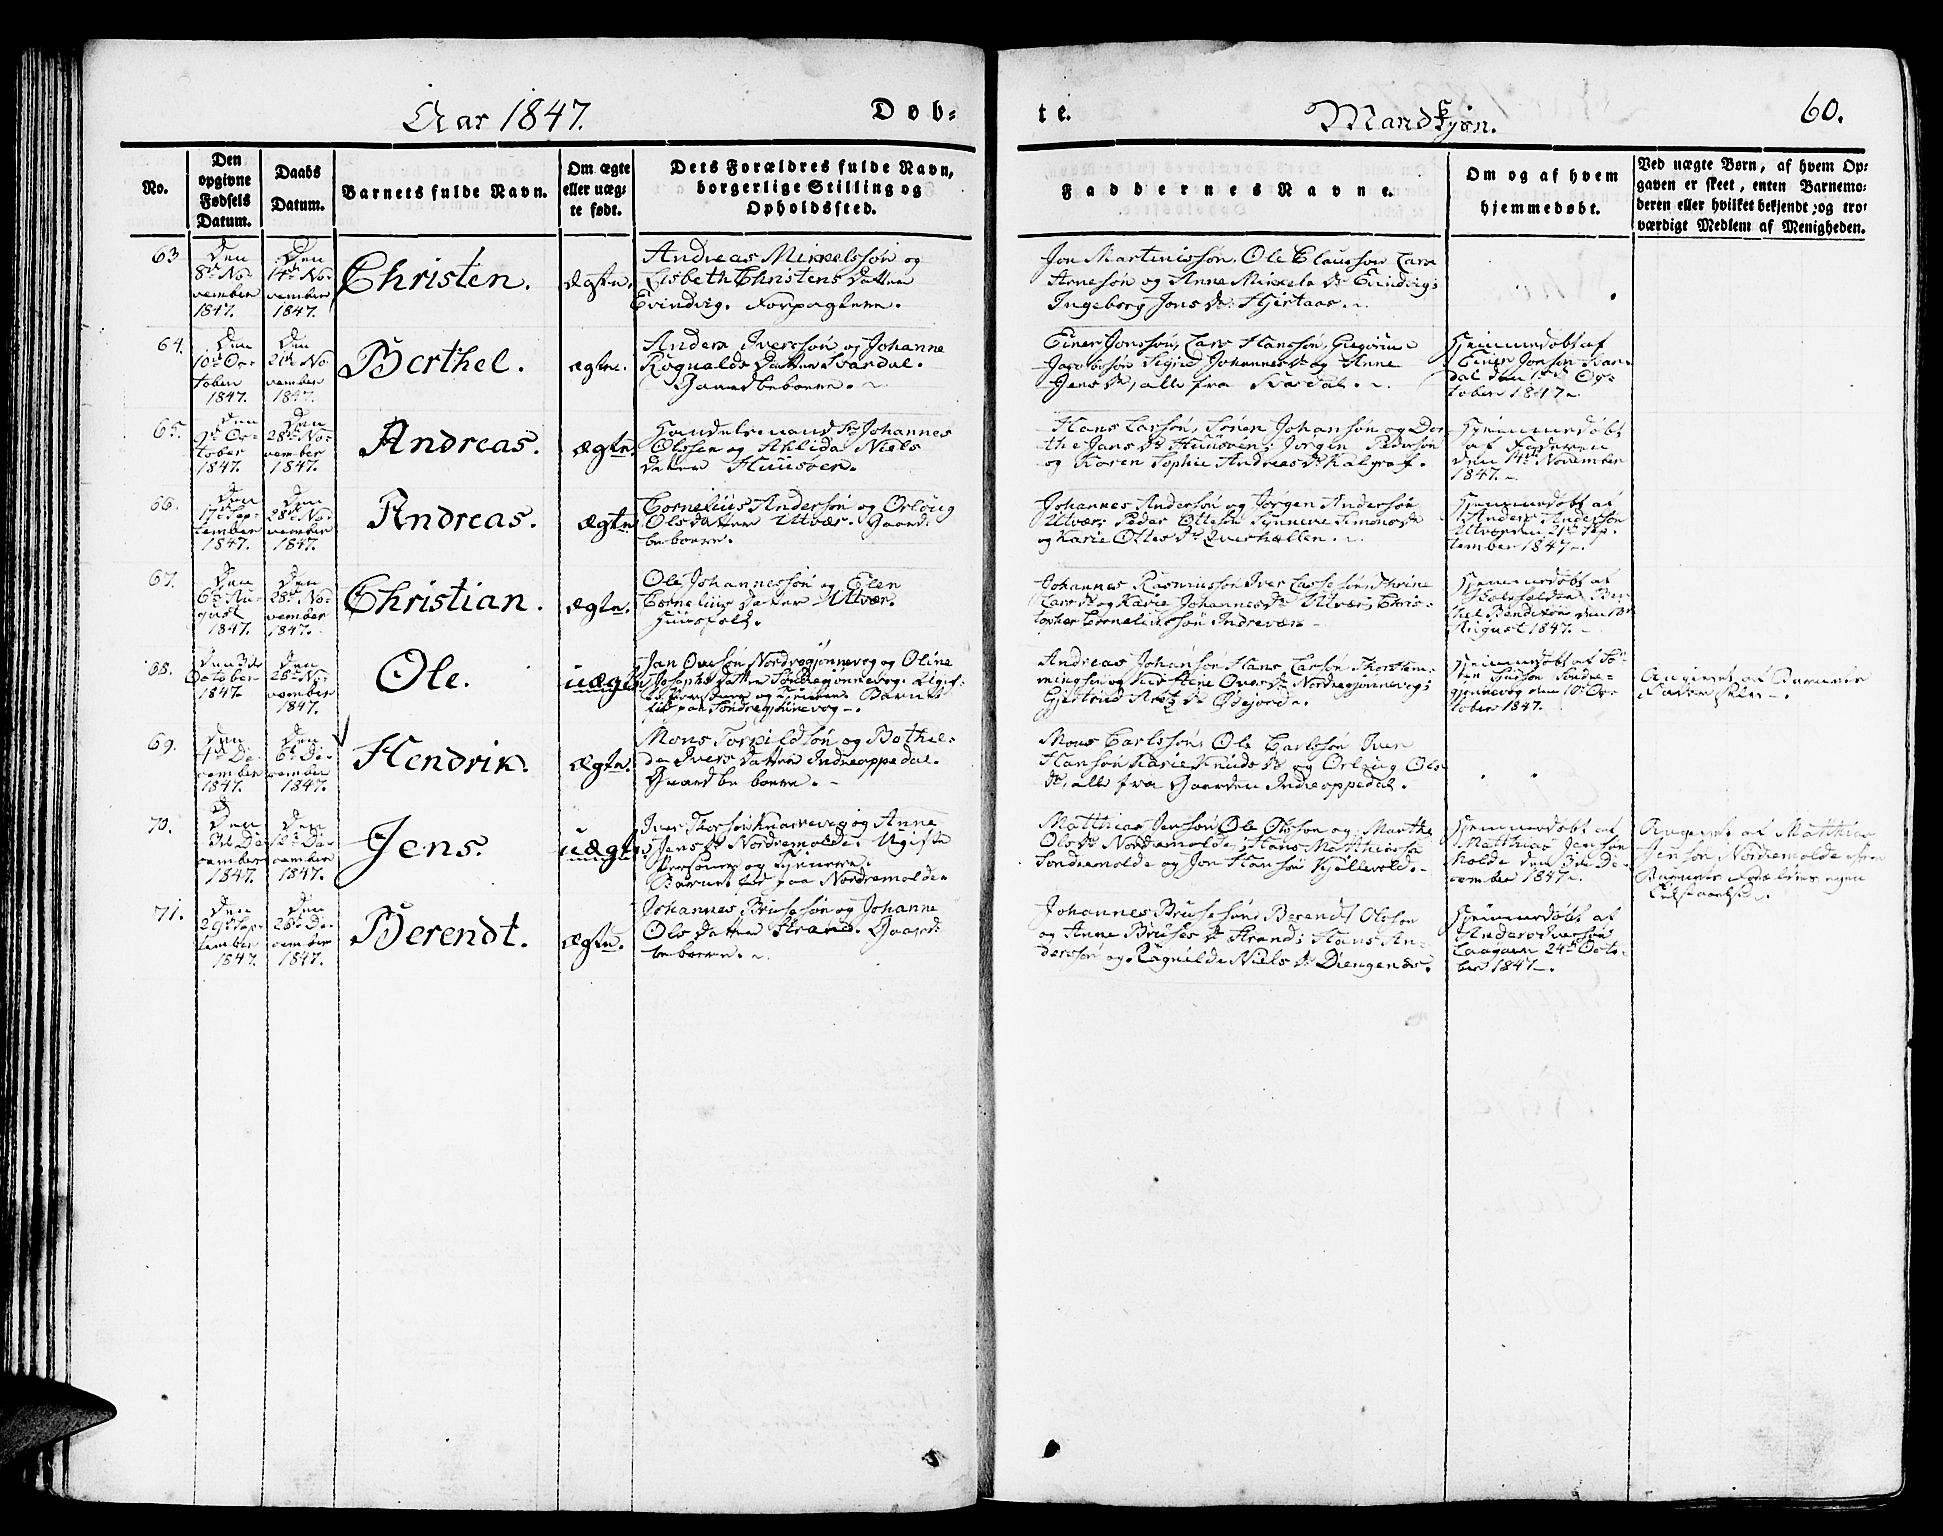 Aar 1847.
Døb-
te.
Mandkjøn.
60.
No.
Den
opgivne
Fødsels
Datum.
Daabs
Datum.
Barnets fulde Navn.
Om ægte
eller uæg-
te født.
Dets Forældres fulde Navn,
borgerlige Stilling og
Opholdssted.
Faddernes Navne.
Om og af hvem
hjemmedøbt.
Ved uægte Børn, af hvem Op-
gaven er skeet, enten Barnemo-
deren eller hvilket bekjendt, og tro-
værdigt Medlem af Menigheden.
63
Den
8de No-
vember
1847.
Den
14de No-
vember
1847.
Christen.
Ægte.
Andreas Mikkelssøn og
Lisbeth Christens Datter
Evindvig. Forpagtere.
Jon Martinissøn, Ole Claussøn Lars
Arnesøn og Anne Mikkels Dr Evindvig;
Ingeborg Jons Dr Hjertaas.
64.
Den
10de Oc-
tober
1847.
Den
21de No-
vember
1847.
Berthel.
Ægte.
Anders Iverssøn og Johanne
Rognalds Datter Svardal.
Gaardbeboere.
Einer Jonssøn, Lars Hanssøn, Gregorius
Jacobsøn Sigrid Johannes Dr og Anne
Jens Dr, alle fra Svardal.
Hjemmedøbt af
Einer Jonsøn Svar-
dal den Oc-
tober 1847.
65.
Den
9de Oc-
tober
1847.
Den
28de No-
vember
1847.
Andreas.
Ægte.
Handelsmand Sr Johannes
Olssen og Ahlida Niels
datter Huusøen.
Hans Larsøn, Søren Johansøn og Dor-
the Jans Dr Huusøen; Jørgen Pedersøn
og Karen Sophie Andreas Dr Kalgraf.
Hjemmedøbt
af Faderen
den 14de November
1847.
66.
Den
17de Sep-
tember
1847.
Den
28de No-
vember
1847.
Andreas.
Ægte
Cornelius Anderssøn og Orloug
Olsdatter Utvær. Gaard-
beboere.
Johannes Anderssøn og Jørgen Anderssøn
Utvær; Peder Ottesøn Synneve Simons Dr
og Karie Ottes Dr Qverhellen.
Hjemmedøbt af
Anders Andersøn
Utvær den 21de Sep-
tember 1847.
67.
Den
6te Au-
gust
1847.
Den
28de No-
vember
1847.
Christian.
Ægte.
Ole Johannessøn og Elen
Cornelius datter Utvær.
Huusfolk.
Johannes Rasmussøn Iver Lassesøn, Thrine
Lars Dr og Karie Johannes Dr Utvær; Chris-
topher Corneliussøn Indrevær
Hjemmedøbt af
Skoleholder Ber-
thel Bendixøn den
August 1847.
68.
Den 3de
October
1847
Den
28de No-
vember
1847.
Ole.
uægte
Jan Ovesøn Nordregjønnevog og Oline
Josephs datter Søndregjønnevog. Ugif-
te Personer og Barnet
født paa Søndregjønnevog.
Andreas Johansøn Hans Larsøn Thorsten
og Kirstene Oves Dr Nordregjønnevog;
Gjertrud Dr Ødejord.
Hjemmedøbt af
Søndre-
gjønnevog den 10de Oc-
tober 1847.
Angivet af Barnets
Fader selv.
69.
Den
1ste De-
cember
1847.
Den
6te De-
cember
1847.
Hendrik.
Ægte.
Mons Torkildsøn og Bothil-
da Ivers datter Indreoppedal.
Gaardbeboere.
Mons Carlssøn, Ole Carlssøn Iver
Hansøn Karie Knuds Dr og Orloug Ols
Dr, alle fra Gaarden Indreoppedal.
70.
Den
3de De-
cember
1847.
Den
12te De-
cember
1847.
Jens.
uægte
Iver Thorsøn Knarrevig og Anne
Jens Dr Nordremolde. Ugifte
Personer og Tjenere.
Barnet født paa Nordremolde.
Matthias Jensøn Ole Olssøn og Marthe
Ols Dr Nordremolde; Hans Matthiessøn
Søndremolde og Jon Hansøn Kjellevold.
Hjemmedøbt af
Matthias Jensøn
Molde den 3de De-
cember 1847.
Angivet af Matthias
Jensøn Nordremolde efter
Barnets Forældres egen
Tilstaaelse.
71.
Den
29de Sep-
tember
1847.
Den
26de De-
cember
1847.
Berendt.
Ægte.
Johannes Brusesøn og Johanne
Olsdatter Strand. Gaard-
beboere.
Johannes Brusesøn, Berendt Olsson
og Anne Bruses Dr Strand; Hans An-
derssøn og Ragnilde Niels Dr Dingenes.
Hjemmedøbt af
Anders Iverssøn
24de Octo-
ber 1847.